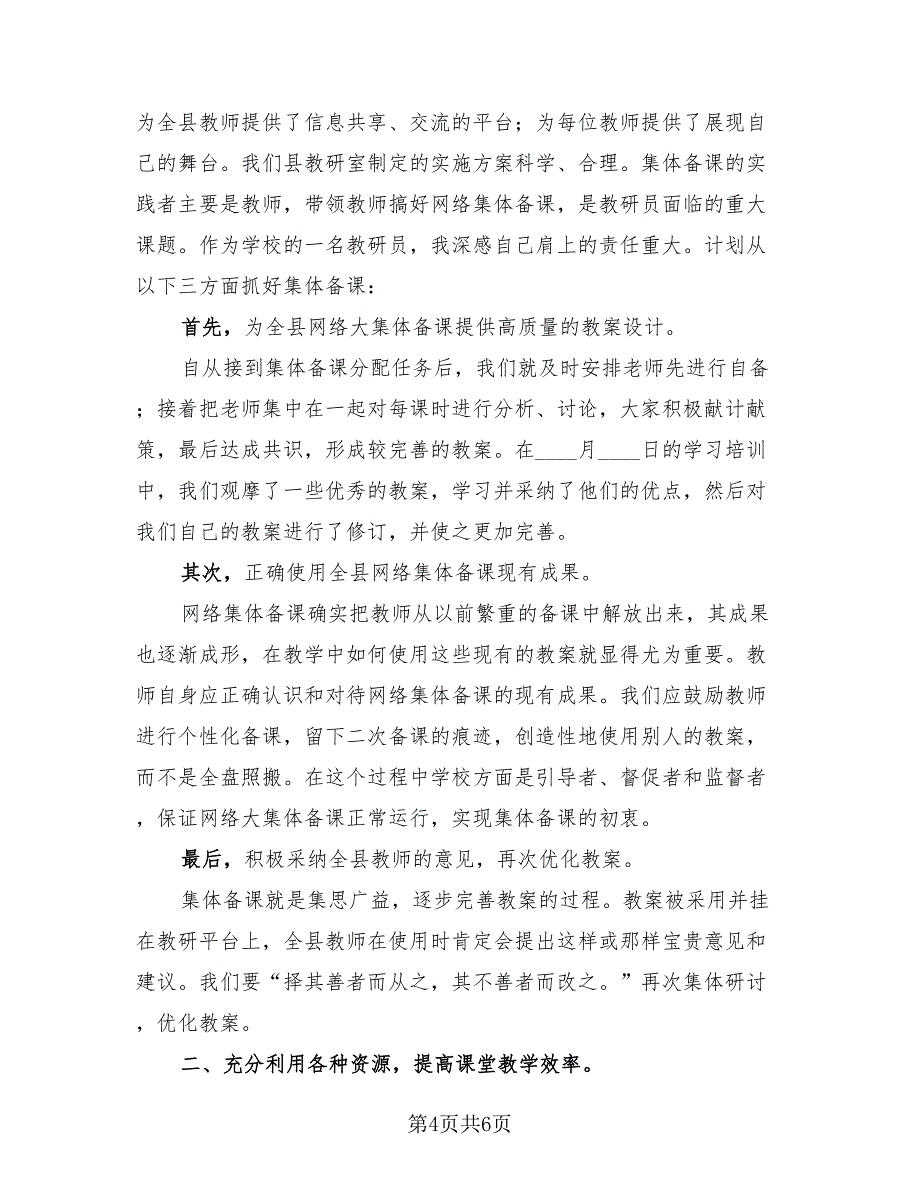 为全县教师提供了信息共享、交流的平台；为每位教师提供了展现自
己的舞台。我们县教研室制定的实施方案科学、合理。集体备课的实
践者主要是教师，带领教师搞好网络集体备课，是教研员面临的重大
课题。作为学校的一名教研员，我深感自己肩上的责任重大。计划从
以下三方面抓好集体备课：
首先，为全县网络大集体备课提供高质量的教案设计。
自从接到集体备课分配任务后，我们就及时安排老师先进行自备
；接着把老师集中在一起对每课时进行分析、讨论，大家积极献计献
策，最后达成共识，形成较完善的教案。在____月____日的学习培训
中，我们观摩了一些优秀的教案，学习并采纳了他们的优点，然后对
我们自己的教案进行了修订，并使之更加完善。
其次，正确使用全县网络集体备课现有成果。
网络集体备课确实把教师从以前繁重的备课中解放出来，其成果
也逐渐成形，在教学中如何使用这些现有的教案就显得尤为重要。教
师自身应正确认识和对待网络集体备课的现有成果。我们应鼓励教师
进行个性化备课，留下二次备课的痕迹，创造性地使用别人的教案，
而不是全盘照搬。在这个过程中学校方面是引导者、督促者和监督者
，保证网络大集体备课正常运行，实现集体备课的初衷。
最后，积极采纳全县教师的意见，再次优化教案。
集体备课就是集思广益，逐步完善教案的过程。教案被采用并挂
在教研平台上，全县教师在使用时肯定会提出这样或那样宝贵意见和
建议。我们要“择其善者而从之，其不善者而改之。”再次集体研讨
，优化教案。
二、充分利用各种资源，提高课堂教学效率。
第4页共6页